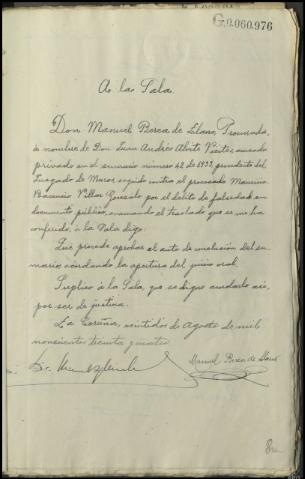 G.9.060.976
A la Sala.
Don Manuel Berea de Llano, Procurador,
en nombre de Don Juan Andrés Abite Vieites, acusador
privado en el sumario número 42 de 1933, procedente del
Juzgado de Muros, seguido contra el procesado Maximino
Villar González por el delito de falsedad en
documento público, evacuando el traslado que se me ha
conferido, a la Sala digo:
Que procede aprobar el auto de conclusión del su-
mario, acordando la apertura del juicio oral.
Suplico a la Sala, que se digne acordarlo así,
por ser de justicia.
La Coruña, veintidos de Agosto de mil
novecientos treinta y cuatro.
Manuel Berea de Llano